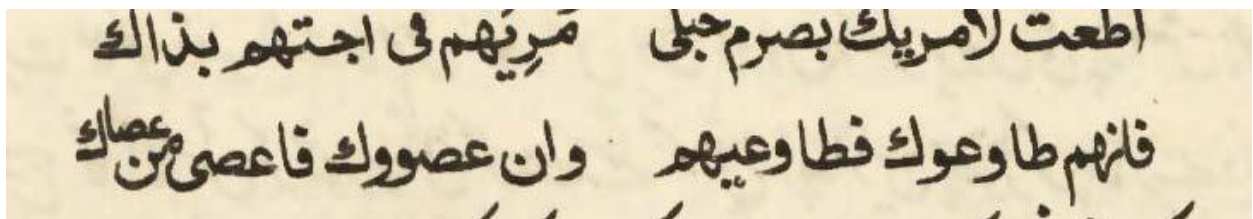 اطعت لامريك بصرم حبلى مَرِيَهم فى اجتهم بذاك
فانهم طاوعوك فطاوعيهم وان عصووك فاعصى من عصاك